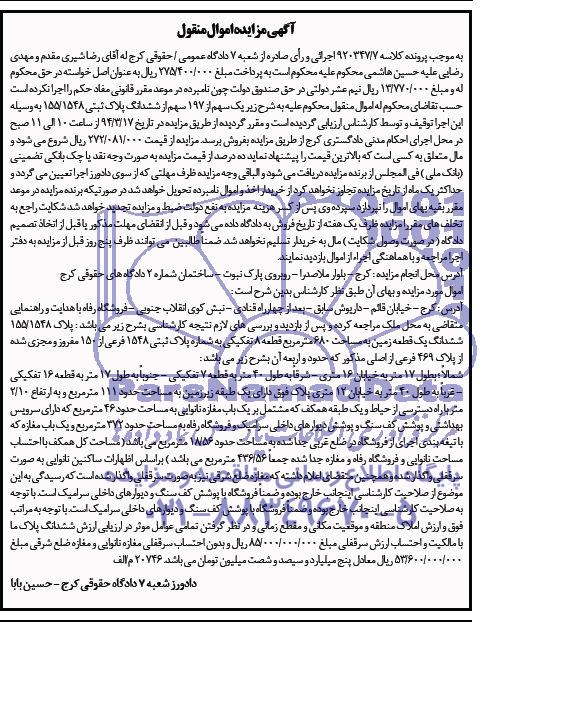 آگهی مزایده اموال منقول
به موجب پرونده کلاسه ۹۲۰۳۴۷/۷ اجرائی و رأی صادره از شعبه ۷ دادگاه عمومی / حقوقی کرج له آقای رضا شیری مقدم و مهدی
رضایی علیه حسین هاشمی محکوم علیه محکوم است به پرداخت مبلغ ۲۷۵/۴۰۰/۰۰۰ ریال به عنوان اصل خواسته در حق محکوم
له و مبلغ ۱۳/۷۷۰/۰۰۰ ریال نیم عشر دولتی در حق صندوق دولت چون نامبرده در موعد مقرر قانونی مفاد حکم را اجرا نکرده است
حسب تقاضای محکوم له اموال منقول محکوم علیه به شرح زیر یک سهم از ۱۹۷ سهم از ششدانگ پلاک ثبتی ۱۵۵/۱۵۴۸ به وسیله
این اجرا توقیف و توسط کارشناس ارزیابی گردیده است و مقرر گردیده از طریق مزایده در تاریخ ۹۴/۳/۱۷ از ساعت ۱۰ الی ۱۱ صبح
در محل اجرای احکام مدنی دادگستری کرج از طریق مزایده بفروش برسد. مزایده از قیمت ۲۷۲/۰۸۱/۰۰۰ ریال شروع می شود و
مال متعلق به کسی است که بالاترین قیمت را پیشنهاد نماید ده درصد از قیمت مزایده به صورت وجه نقد یا چک بانکی تضمینی
(بانک ملی) فی المجلس از برنده مزایده دریافت می شود و الباقی وجه مزایده ظرف مهلتی که از سوی دادورز اجرا تعیین می گردد و
حداکثر یک ماه از تاریخ مزایده تجاوز نخواهد کرد از خریدار اخذ و اموال نامبرده تحویل خواهد شد در صورتیکه برنده مزایده در موعد
مقرر بقیه بهای اموال را نپردازد سپرده وی پس از کسر هزینه مزایده به نفع دولت ضبط و مزایده تجدید خواهد شد شکایت راجع به
تخلف های مقرر مزایده ظرف یک هفته از تاریخ فروش به دادگاه داده می شود و قبل از انقضای مهلت مذکور یا قبل از اتخاذ تصمیم
دادگاه (در صورت وصول شکایت) مال به خریدار تسلیم نخواهد شد. ضمناً طالبین می توانند ظرف پنج روز قبل از مزایده به دفتر
اجرا مراجعه و با هماهنگی اجرا از اموال بازدید نمایند.
آدرس محل انجام مزایده: کرج - بلوار ملاصدرا - روبروی پارک نبوت - ساختمان شماره ۲ دادگاه های حقوقی کرج
اموال مورد مزایده و بهای آن طبق نظر کارشناس بدین شرح است:
آدرس: کرج - خیابان قائم - داریوش سابق - بعد از چهارراه قنادی - نبش کوی انقلاب جنوبی - فروشگاه رفاه با هدایت و راهنمایی
متقاضی به محل ملک مراجعه کرده و پس از بازدید و بررسی های لازم نتیجه کارشناسی بشرح زیر می باشد: پلاک ۱۵۵/۱۵۴۸
ششدانگ یک قطعه زمین به مساحت ۶۸۰ مترمربع قطعه ۸ تفکیکی به شماره پلاک ثبتی ۱۵۴۸ فرعی از ۱۵۰ مفروز و مجزی شده
از پلاک ۴۶۹ فرعی از اصلی مذکور که حدود و اربعه آن بشرح زیر می باشد:
شمالاً: بطول ۱۷ متر به خیابان ۱۶ متری - شرقاً به طول ۴۰ متر به قطعه ۷ تفکیکی - جنوباً به طول ۱۷ متر به قطعه ۱۶ تفکیکی
- غرباً به طول ۴۰ متر به خیابان ۱۲ متری پلاک فوق دارای یک طبقه زیرزمین به مساحت حدود ۱۱۱ مترمربع و به ارتفاع ۲/۱۰
متر با راه دسترسی از حیاط و یک طبقه همکف که مشتمل بر یک باب مغازه نانوایی به مساحت حدود ۴۶ مترمربع که دارای سرویس
بهداشتی و پوشش کف سنگ و پوشش دیوارهای داخلی سرامیک و فروشگاه رفاه به مساحت حدود ۳۷۲ مترمربع و یک باب مغازه که
با تیغه بندی اجرای از فروشگاه در ضلع غربی جدا شده به مساحت حدود ۱۸/۵۶ مترمربع می باشد (مساحت کل همکف با احتساب
مساحت نانوایی و فروشگاه رفاه و مغازه جدا شده جمعاً ۴۳۶/۵۶ مترمربع می باشد) براساس اظهارات ساکنین نانوایی به صورت
سرقفلی واگذار شده و همچنین متقاضی اعلام داشته که مغازه ضلع شرقی نیز به صورت سرقفلی واگذار شده است که رسیدگی به این
موضوع از صلاحیت کارشناسی اینجانب خارج بوده و ضمناً فروشگاه با پوشش کف سنگ و دیوارهای داخلی سرامیک است. با توجه
به صلاحیت کارشناسی اینجانب خارج بوده و ضمناً فروشگاه با پوشش کف سنگ و دیوارهای داخلی سرامیک است. با توجه به مراتب
فوق و ارزش املاک منطقه و موقعیت مکانی و مقطع زمانی و در نظر گرفتن تمامی عوامل موثر در ارزیابی ارزش ششدانگ پلاک ما
با مالکیت و احتساب ارزش سرقفلی مبلغ ۸۵/۰۰۰/۰۰۰/۰۰۰ ریال و بدون احتساب سرقفلی مغازه نانوایی و مغازه ضلع شرقی مبلغ
۵۳/۶۰۰/۰۰۰/۰۰۰ ریال معادل پنج میلیارد و سیصد و شصت میلیون تومان می باشد. ۲۰۷۴۶ م/الف
دادورز شعبه ۷ دادگاه حقوقی کرج - حسین بابا